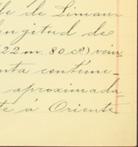 fe de Liman
ongitud de
22 m. 80 c.) vein
nta contíme-
aproximada
te á Oriente